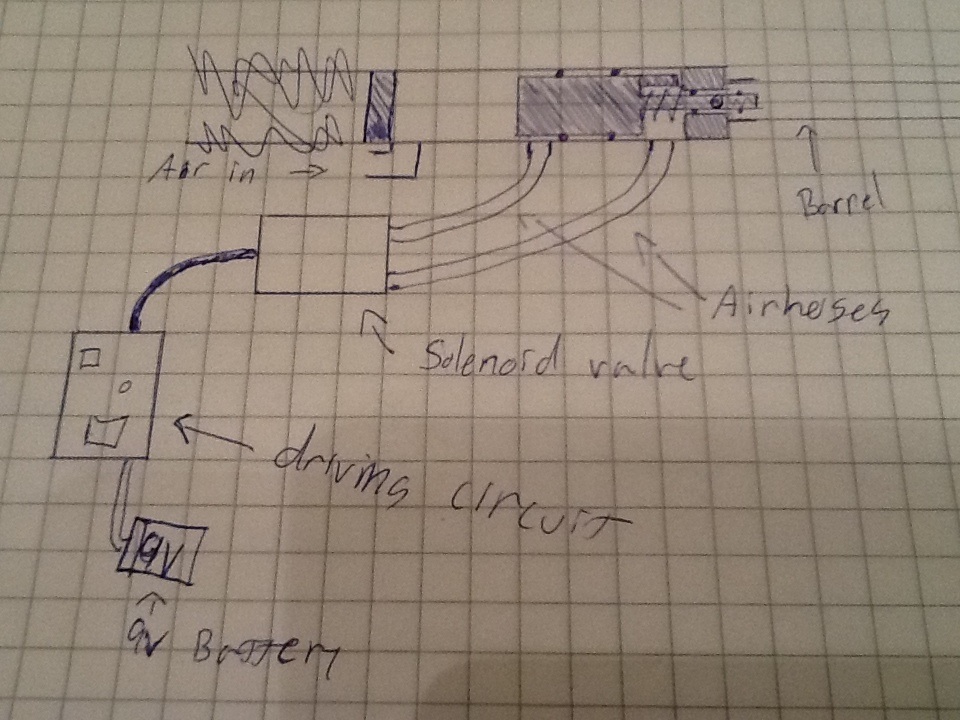 Air in
Barrel
Airhoses
Solenoid valve
driving circuit
9V
9v Battery